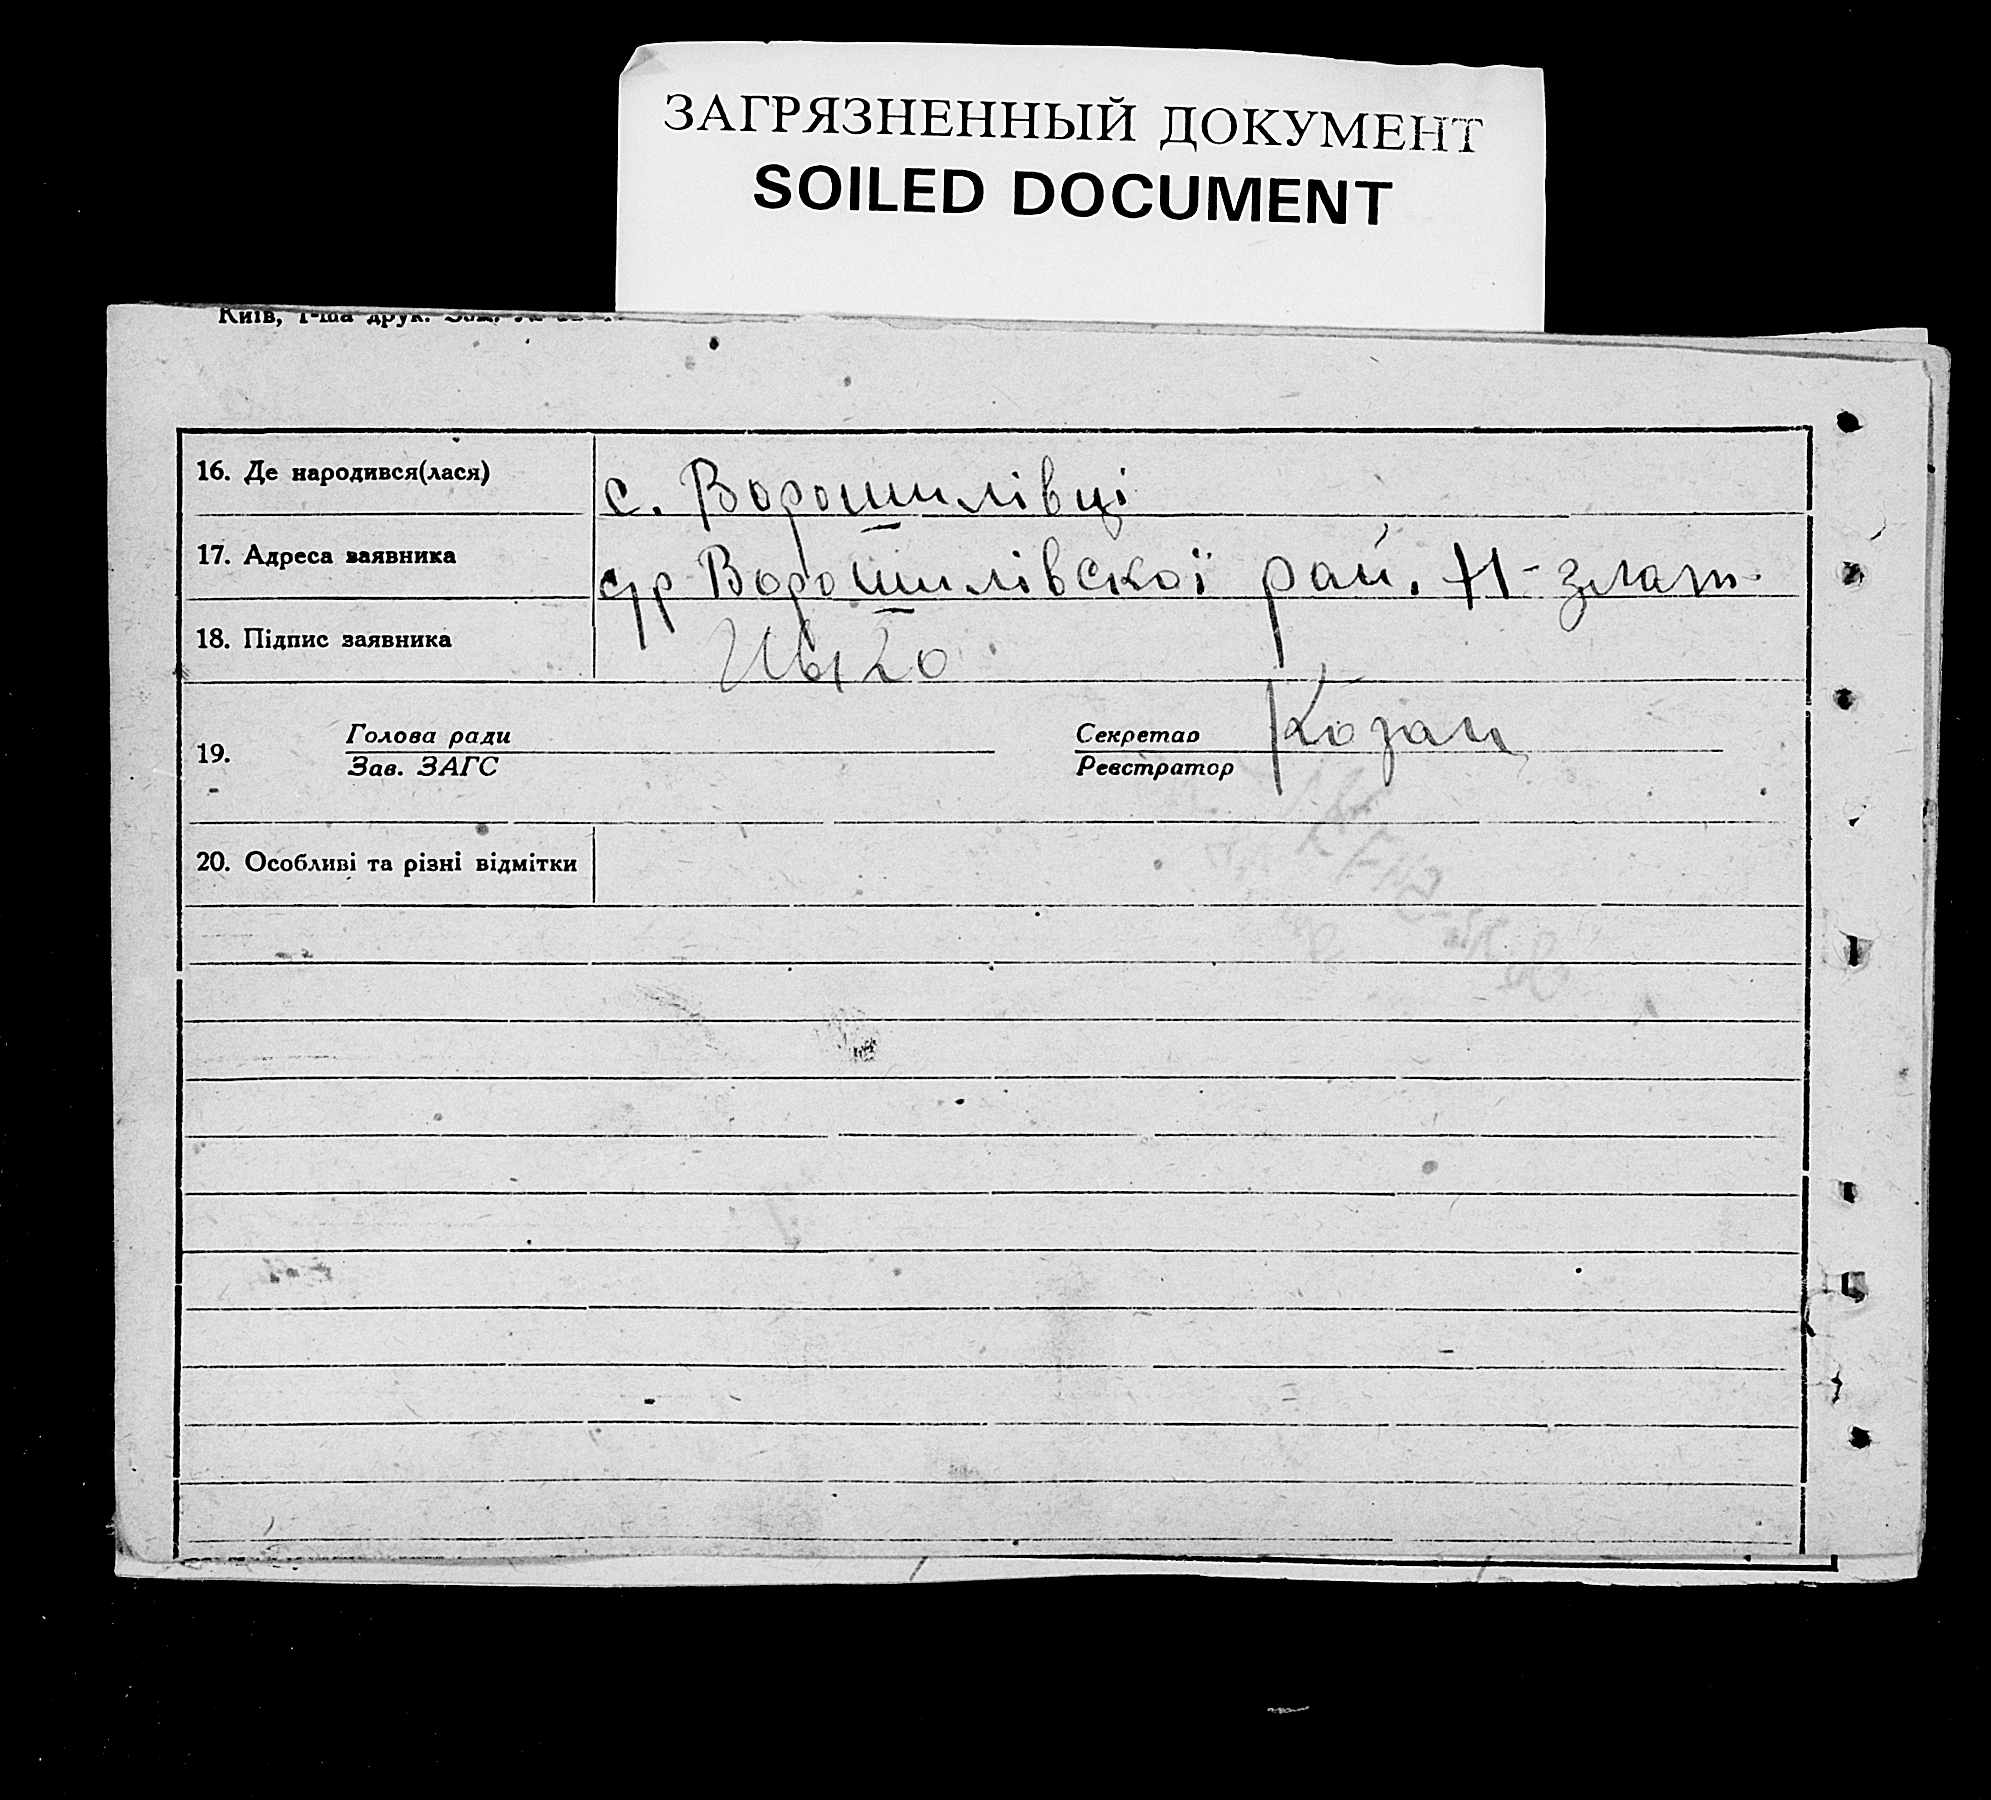 ЗАГРЯЗНЕННЫЙ ДОКУМЕНТ
SOILED DOCUMENT
Київ, 1-ша друк.
16. Де народився(лася) с. Ворошилівці
17. Адреса заявника с/р Ворошилівскої рай. Н-злат
18. Підпис заявника
19. Голова ради
Зав. ЗАГС
Секретар Козац
Реєстратор
20. Особливі та різні відмітки